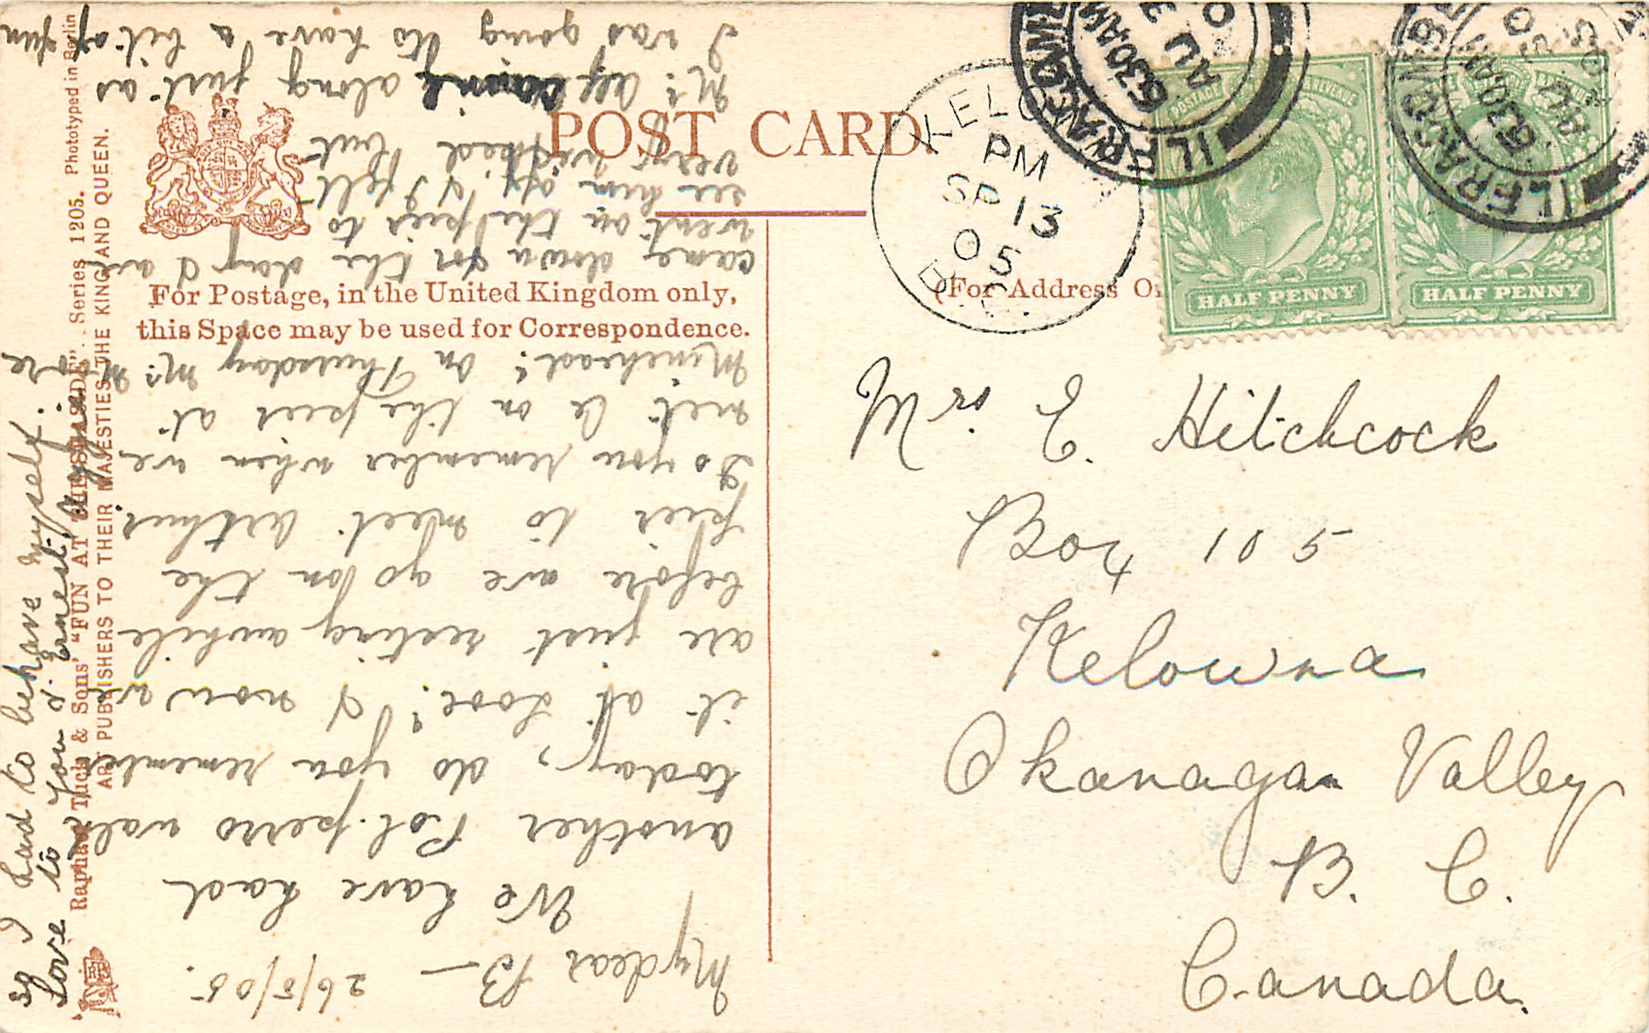 POST CARD
For Postage, in the United Kingdom only,
this Space may be used for Correspondence.
(For Address
HALF PENNY
HALF PENNY
POSTAGE
REVENUE
KELOWNA
PM
SP 13
05
B.C.
ILFRACOMBE
630AM
AU
ILFRACOMBE
630AM
AU
Mrs. E. Hitchcock
Box 105
Kelowna
Okanagan Valley
B. C.
Canada.
My dear B— 26/8/05.
We have had
another Pol.perro walk
today, do you remember
it at Looe? I now we
are just resting awhile
before we go on the
pier to meet Arthur.
Do you remember when we
met B on the pier at
Minehead? On Thursday Mr. Moore
came down for the day I we
went on the pier to
see him off & I felt
very wicked but
Mr. came along just as
I was going to have a bit of fun
so I had to behave myself.
Love to You & Ernest,
Raphael Tuck & Sons' "FUN AT THE SEASIDE" Series 1205. Phototyped in Berlin
ART PUBLISHERS TO THEIR MAJESTIES THE KING AND QUEEN.